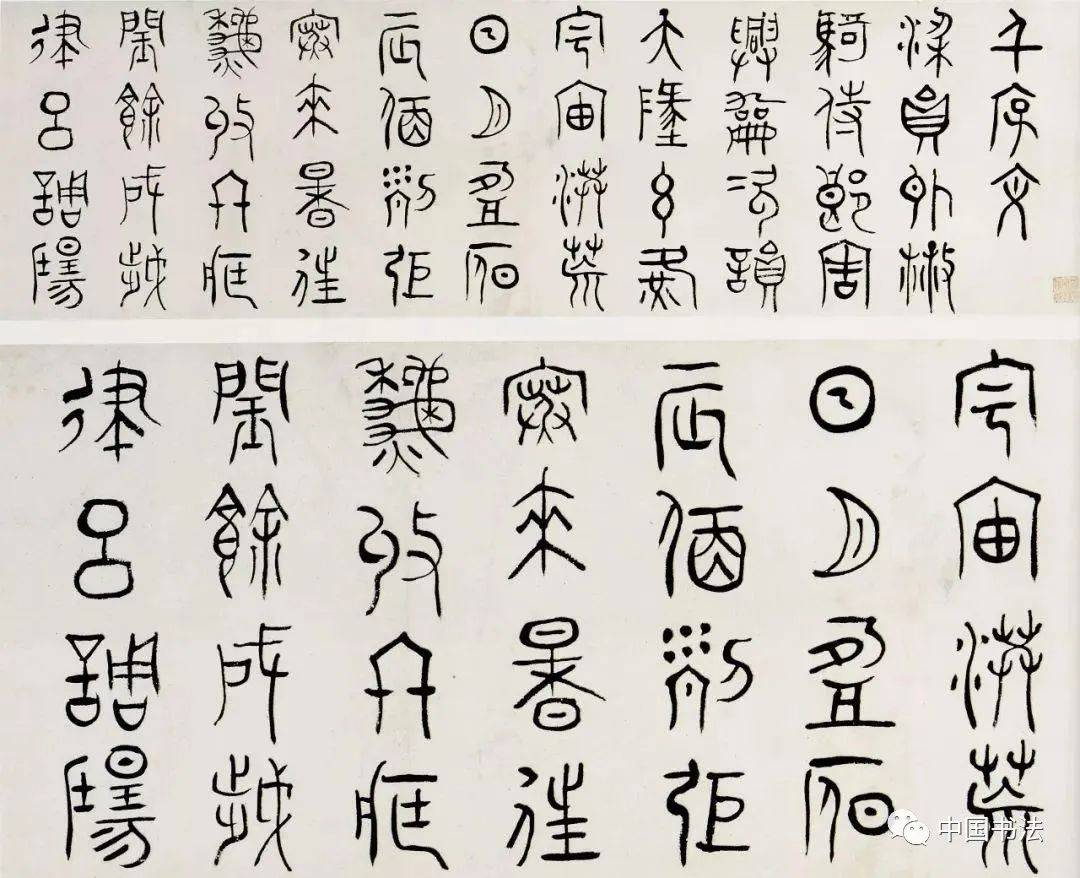 千字文
梁員外散
騎侍郎周
興嗣次韻
天地玄黃
宇宙洪荒
日月盈昃
辰宿列張
寒來暑往
秋收冬藏
閏餘成歲
律呂調陽
宇宙洪荒
日月盈昃
辰宿列張
寒來暑往
秋收冬藏
閏餘成歲
律呂調陽
中国书法